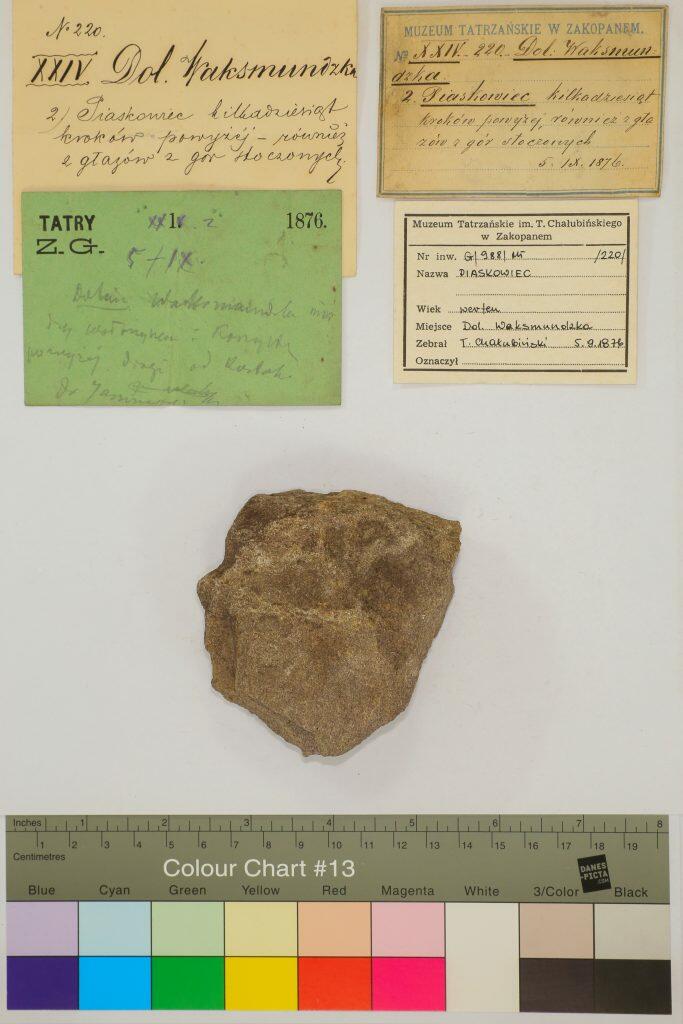 N° 220.
XXIV. Dol. Waksmundzka
2) Piaskowiec kilkadziesiąt
kroków powyżej – również
z głazów z gór stoczonych
MUZEUM TATRZAŃSKIE W ZAKOPANEM.
№ XXIV - 220 - Dol. Waksmun-
dzka.
2. Piaskowiec kilkadziesiąt
kroków powyżej, również z gła
zów z gór stoczonych
5. IX. 1876.
TATRY 1876.
Z. G.
5/IX.
Dolina
powyżej drogi od
Muzeum Tatrzańskie im. T. Chałubińskiego
w Zakopanem
Nr inw. G/988/MT /220/
Nazwa PIASKOWIEC
Wiek werfen
Miejsce Dol. Waksmundzka
Zebrał T. Chałubiński 5.9.1876
Oznaczył
Inches 1 2 3 4 5 6 7 8
1 2 3 4 5 6 7 8 9 10 11 12 13 14 15 16 17 18 19
Centimetres
Colour Chart #13
DANES
-PICTA
.COM
Blue Cyan Green Yellow Red Magenta White 3/Color Black